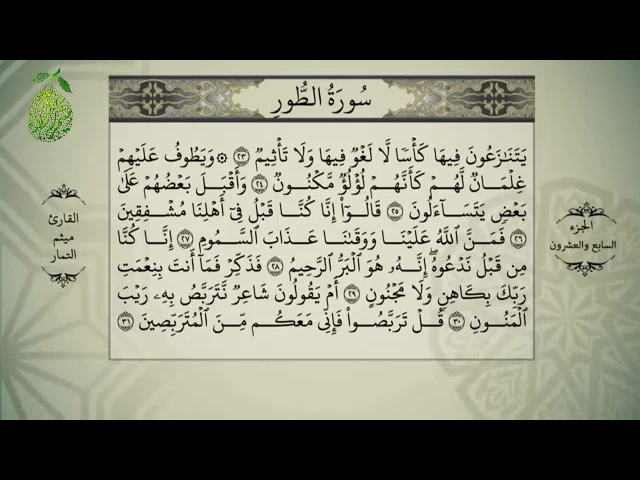 سُورَةُ الطُّورِ
يَتَنَٰزَعُونَ فِيهَا كَأۡسٗا لَّا لَغۡوٞ فِيهَا وَلَا تَأۡثِيمٞ ٢٣ ۞ وَيَطُوفُ عَلَيۡهِمۡ
غِلۡمَانٞ لَّهُمۡ كَأَنَّهُمۡ لُؤۡلُؤٞ مَّكۡنُونٞ ٢٤ وَأَقۡبَلَ بَعۡضُهُمۡ عَلَىٰ
بَعۡضٖ يَتَسَآءَلُونَ ٢٥ قَالُوٓاْ إِنَّا كُنَّا قَبۡلُ فِيٓ أَهۡلِنَا مُشۡفِقِينَ
٢٦ فَمَنَّ ٱللَّهُ عَلَيۡنَا وَوَقَىٰنَا عَذَابَ ٱلسَّمُومِ ٢٧ إِنَّا كُنَّا
مِن قَبۡلُ نَدۡعُوهُۖ إِنَّهُۥ هُوَ ٱلۡبَرُّ ٱلرَّحِيمُ ٢٨ فَذَكِّرۡ فَمَآ أَنتَ بِنِعۡمَتِ
رَبِّكَ بِكَاهِنٖ وَلَا مَجۡنُونٍ ٢٩ أَمۡ يَقُولُونَ شَاعِرٞ نَّتَرَبَّصُ بِهِۦ رَيۡبَ
ٱلۡمَنُونِ ٣٠ قُلۡ تَرَبَّصُواْ فَإِنِّي مَعَكُم مِّنَ ٱلۡمُتَرَبِّصِينَ ٣١
الجزء
السابع والعشرون
القارئ
ميثم
التمار